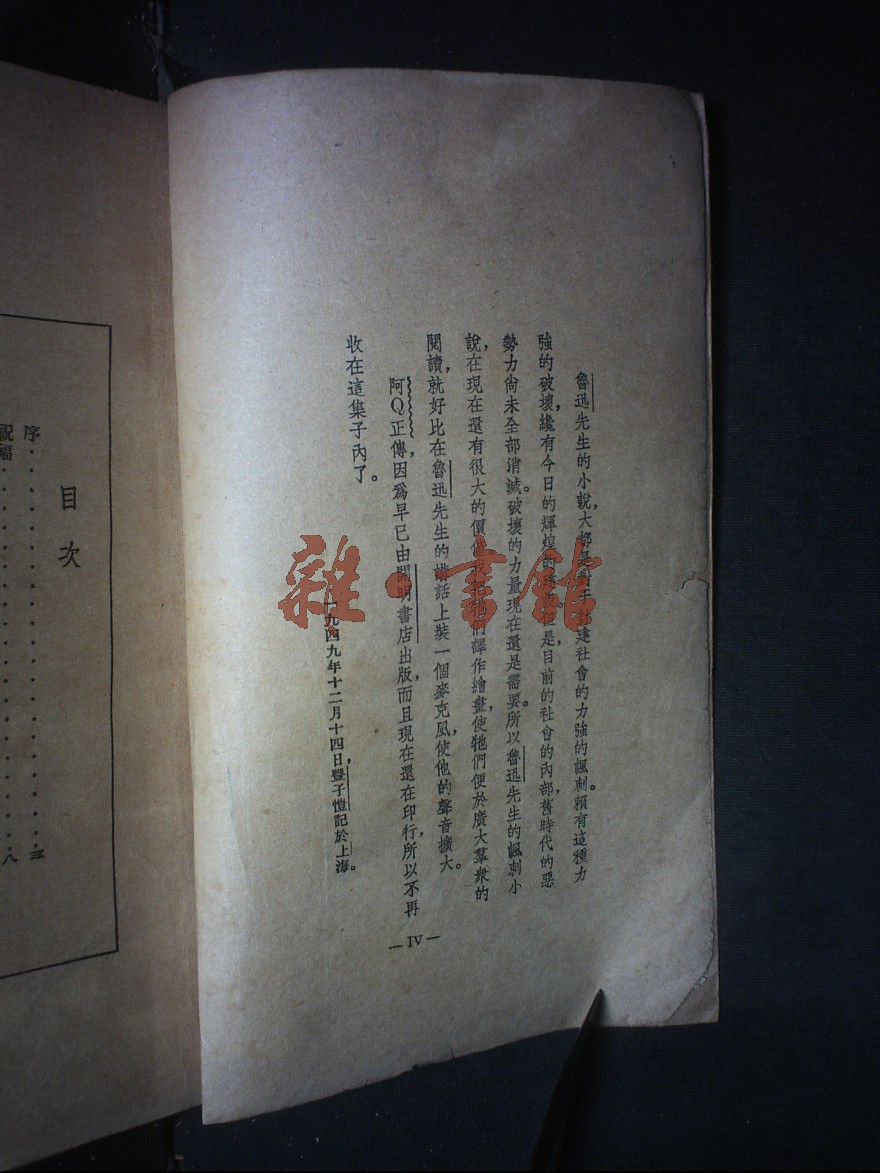 魯迅先生的小說，大都是對
社會的力強的諷刺。賴有這種力
強的破壞，纔有今日的輝煌的
是目前的社會的內部，舊時代的惡
勢力尙未全部消滅。破壞的力量現在還是需要。所以魯迅先生的諷刺小
說，在現在還有很大的價値。
們譯作繪畫，使牠們便於廣大羣衆的
閱讀，就好比在魯迅先生的講話上裝一個麥克風，使他的聲音擴大。
阿Q正傳，因爲早已由開明書店出版，而且現在還在印行，所以不再
收在這集子內了。
一九四九年十二月十四日，豐子愷記於上海。
— IV —
目次
序·················三
祝福················八
雜·書館